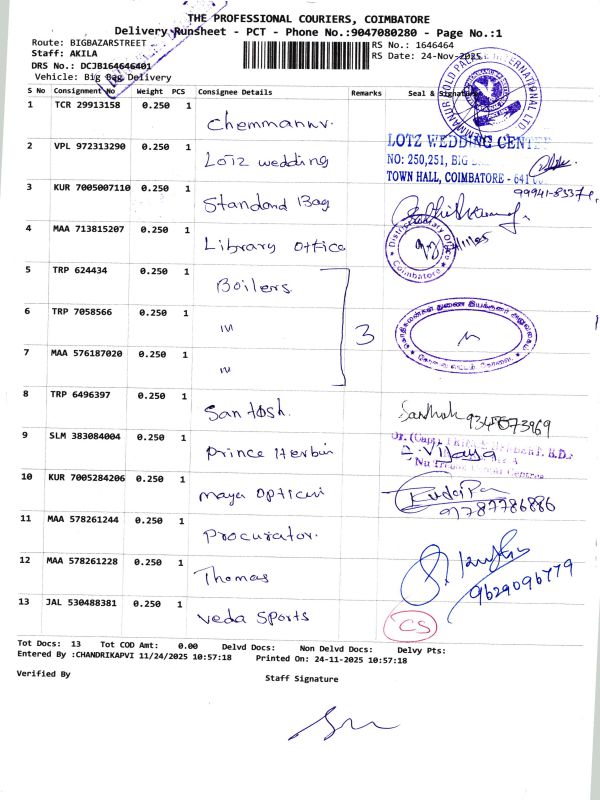 THE PROFESSIONAL COURIERS, COIMBATORE
Delivery Runsheet - PCT - Phone No.:9047080280 - Page No.:1
Route: BIGBAZARSTREET
RS No.: 1646464
Staff: AKILA
RS Date: 24-Nov-2025
DRS No.: DCJB164646401
Vehicle: Big Bag Delivery
S No Consignment No Weight PCS Consignee Details Remarks Seal & Signature
1 TCR 29913158 0.250 1 Chemmannur
2 VPL 972313290 0.250 1 Lotz wedding
LOTZ WEDDING CENTRE
NO: 250,251, BIG
TOWN HALL, COIMBATORE - 641
3 KUR 7005007110 0.250 1 Standard Bag
4 MAA 713815207 0.250 1 Library office
Coimbatore
5 TRP 624434 0.250 1 Boilers
6 TRP 7058566 0.250 1 ııı
3
7 MAA 576187020 0.250 1 ııı
8 TRP 6496397 0.250 1 Santosh.
Santhosh 9347873969
9 SLM 383084004 0.250 1 Prince Herbin
Vijaya
10 KUR 7005284206 0.250 1 maya opticui
9787786886
11 MAA 578261244 0.250 1 Procurator.
12 MAA 578261228 0.250 1 Thomas
9629096779
13 JAL 530488381 0.250 1 Veda Sports
CS
Tot Docs: 13 Tot COD Amt: 0.00 Delvd Docs: Non Delvd Docs: Delvy Pts:
Entered By :CHANDRIKAPVI 11/24/2025 10:57:18 Printed On: 24-11-2025 10:57:18
Verified By Staff Signature